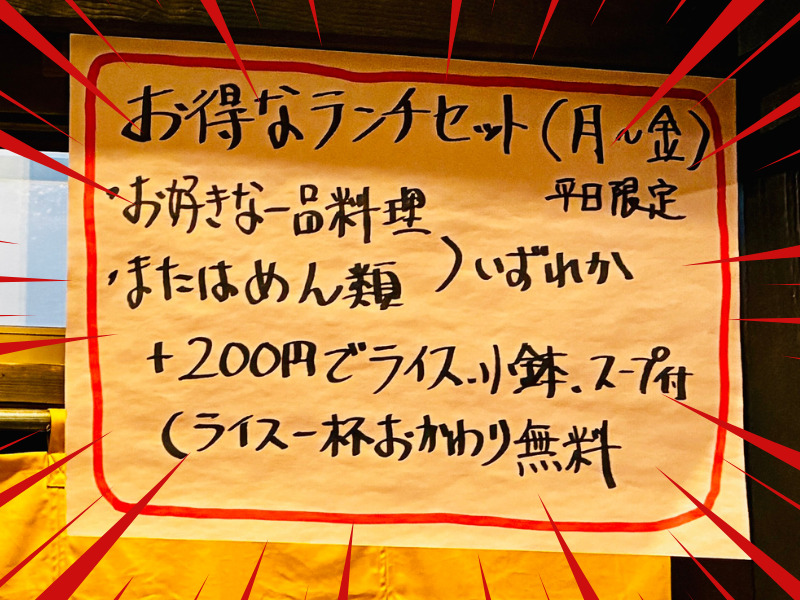 お得なランチセット(月〜金)
平日限定
・お好きな一品料理
・またはめん類 ) いずれか
+200円でライス、小鉢、スープ付
(ライス一杯おかわり無料